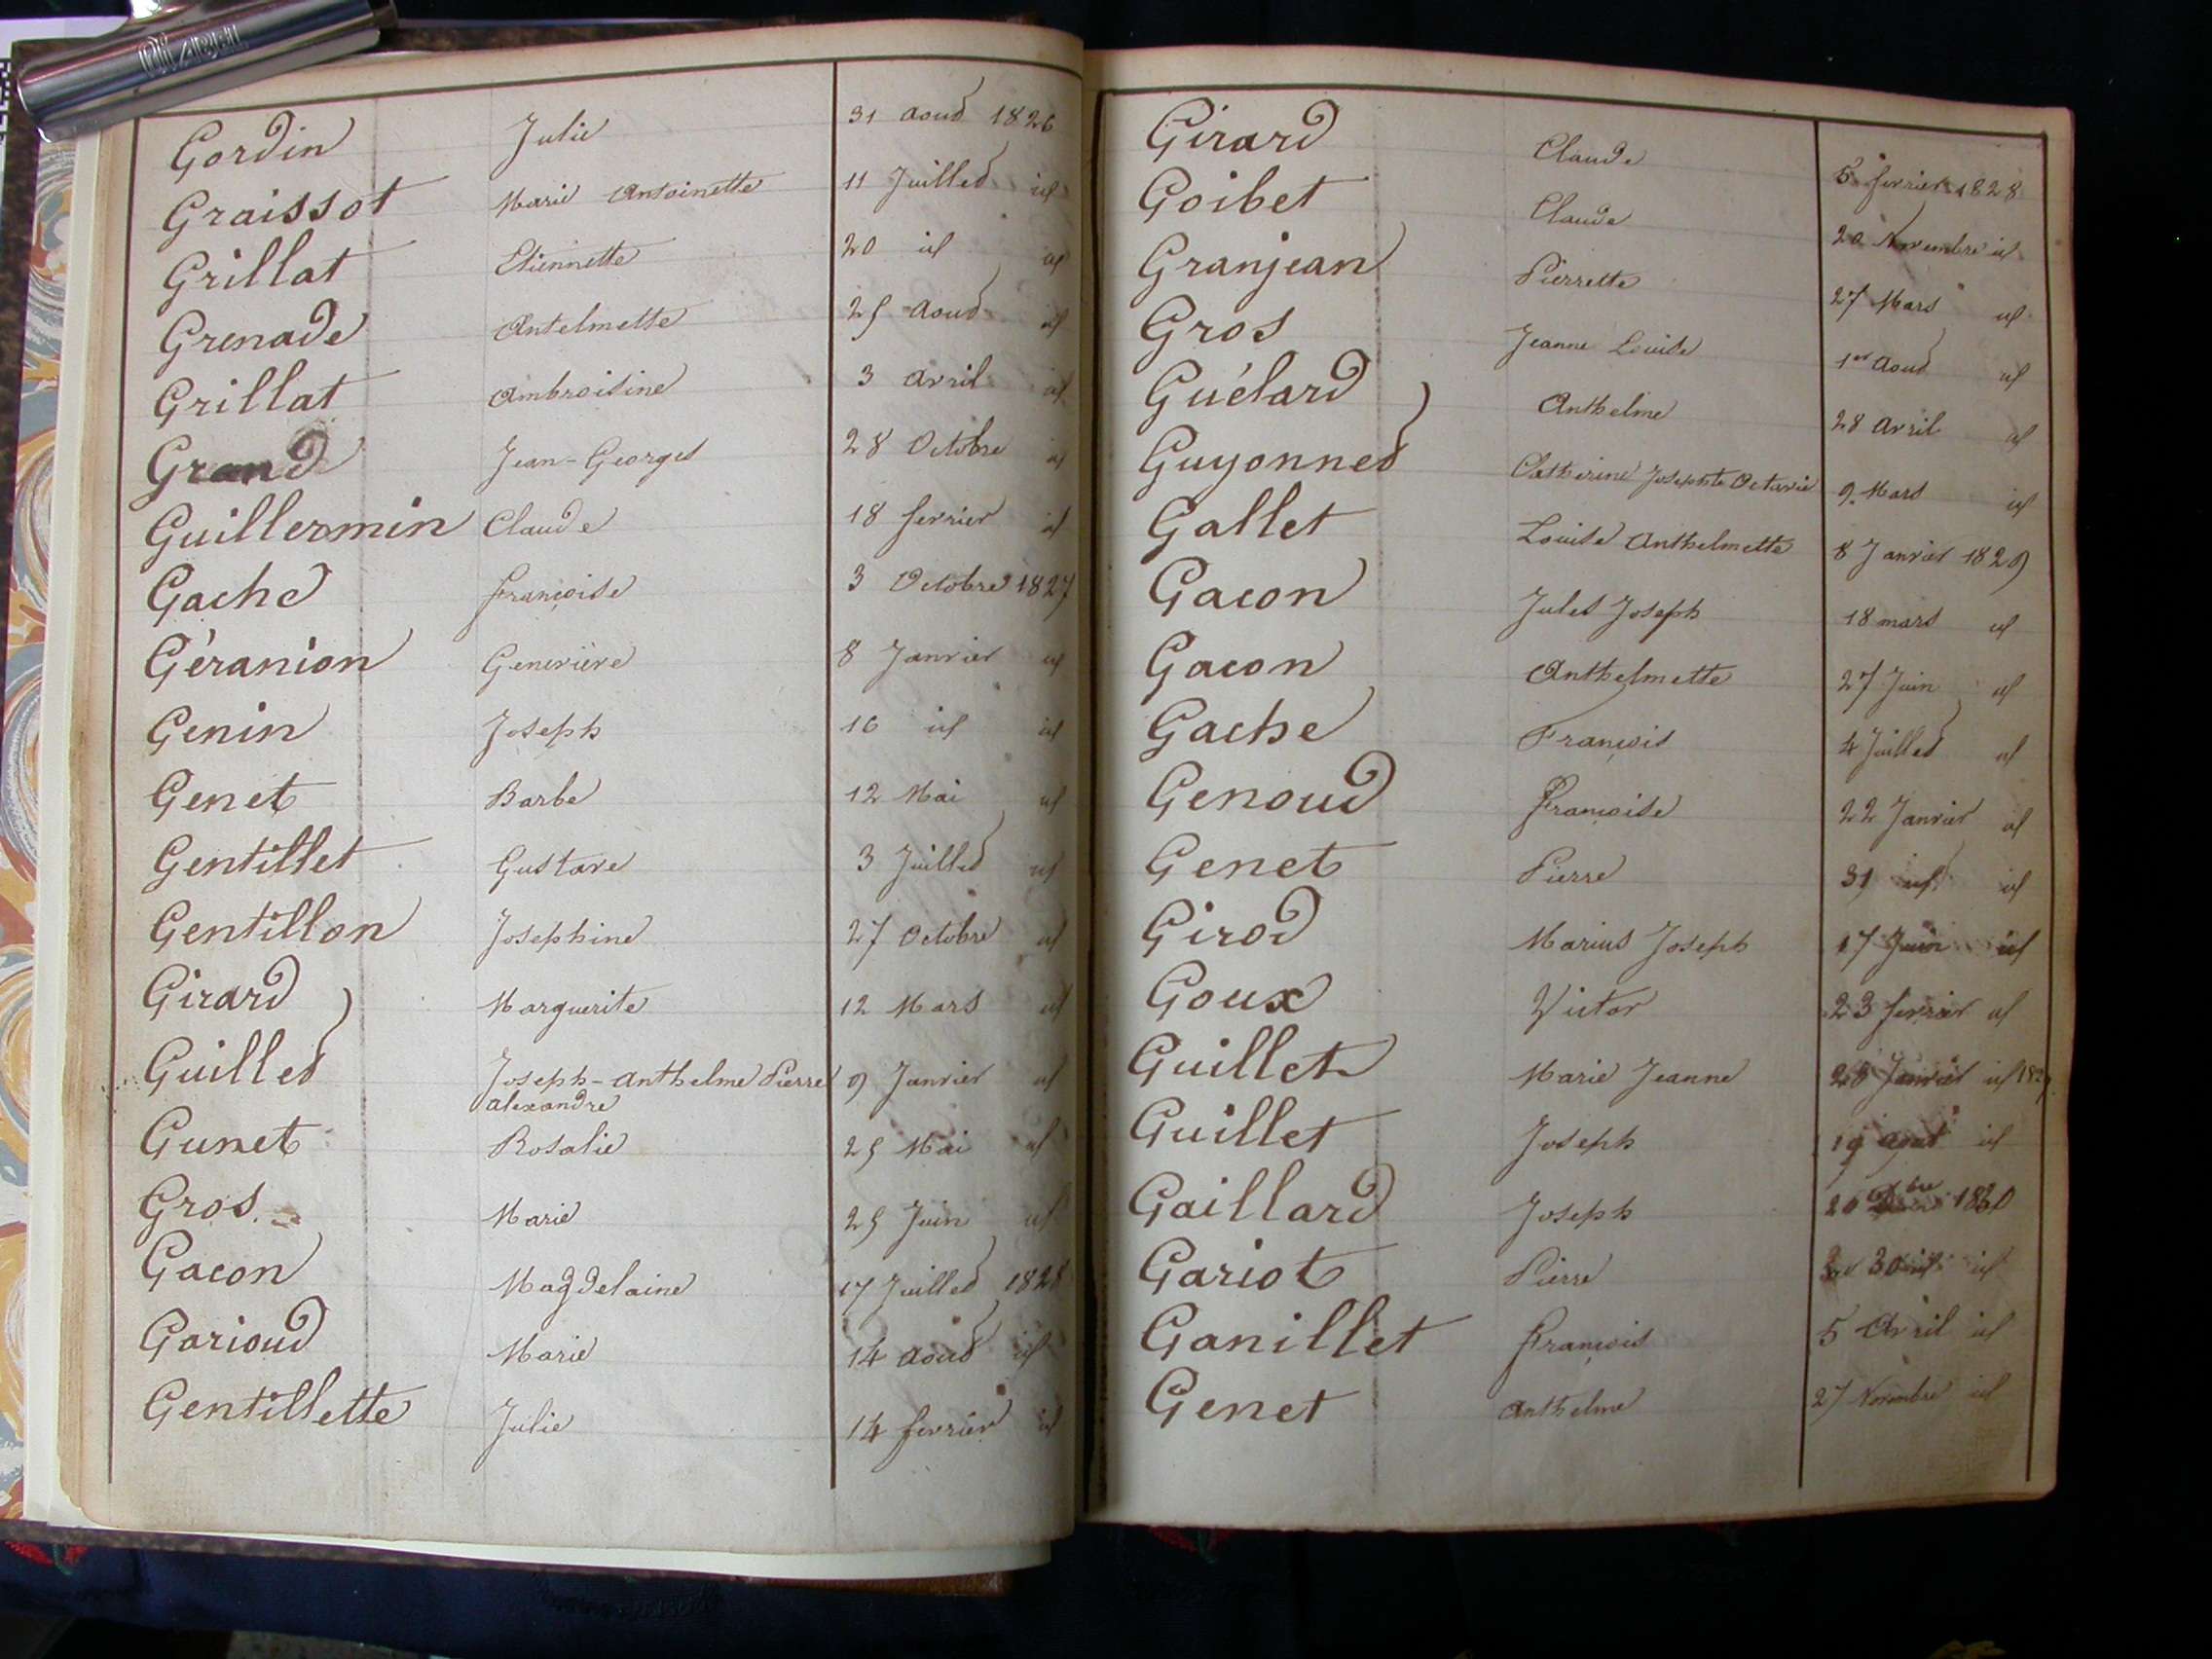 Gordin Julie 31 aoud 1826
Graissot Marie Antoinette 11 Juilled id
Grillat Etiennette 20 id id
Grenade Antelmette 25 aoud id
Grillat Ambroisine 3 avril id
Grand Jean-Georges 28 Octobre id
Guillermin Claude 18 fevrier id
Gache françoise 3 Octobre 1827
Géranion Genevière 8 Janvier id
Genin Joseph 16 id id
Genet Barbe 12 Mai id
Gentillet Gustave 3 Juilled id
Gentillon Josephine 27 Octobre id
Girard Marguerite 12 Mars id
Guilled Joseph-Anthelme Pierre 9 Janvier id
alexandre
Gunet Rosalie 25 Mai id
Gros Marie 25 Juin id
Gacon Magdelaine 17 Juilled 1828
Garioud Marie 14 aoud id
Gentillette Julie 14 fevrier id
Girard Claude 5 fevrier 1828
Goibet Claude 20 Novembre id
Granjean Pierrette 27 Mars id
Gros Jeanne Louise 1er aoud id
Guélard Anthelme 28 avril id
Guyonned Catherine Josephte Octavie 9 Mars id
Gallet Louise Anthelmette 8 Janvier 1829
Gacon Jules Joseph 18 mars id
Gacon Anthelmette 27 Juin id
Gache François 4 Juilled id
Genoud françoise 22 Janvier id
Genet Pierre 31 id id
Girod Marius Joseph 17 Juin id
Goux Victor 23 fevrier id
Guillet Marie Jeanne 28 Janvier id 1829
Guillet Joseph 19 aout id
Gaillard Joseph 26 bre 1830
Gariot Pierre 30 id id
Ganillet françois 5 Avril id
Genet Anthelme 27 Novembre id